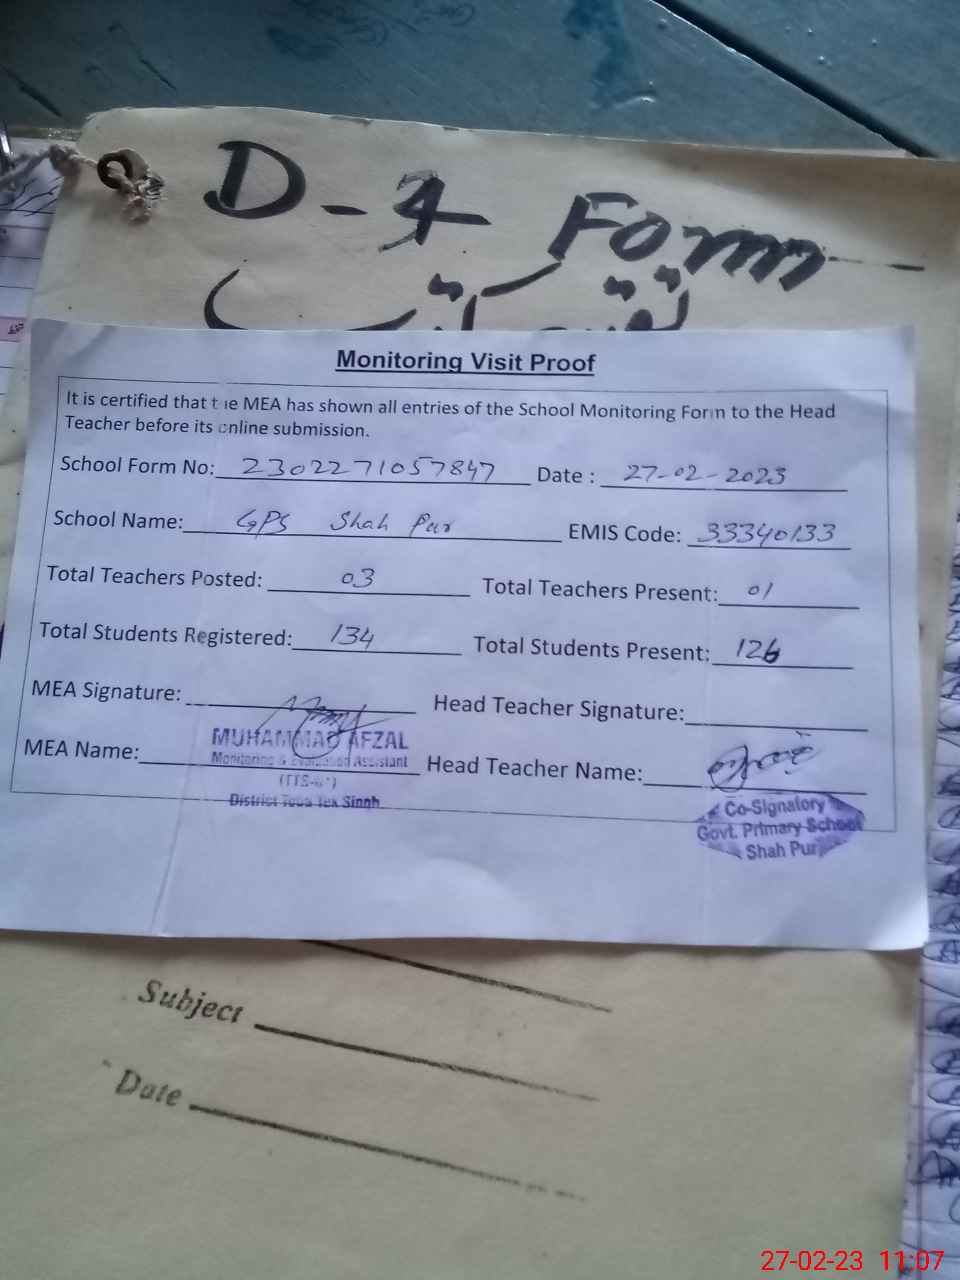 D-4 Form
Monitoring Visit Proof
It is certified that the MEA has shown all entries of the School Monitoring Form to the Head
Teacher before its online submission.
School Form No: 2302271057847 Date : 27-02-2023
School Name: GPS Shah Pur EMIS Code: 33340133
Total Teachers Posted: 03 Total Teachers Present: 01
Total Students Registered: 134 Total Students Present: 126
MEA Signature: Head Teacher Signature:
MUHAMMAD AFZAL
MEA Name: Monitoring & Evaluation Assistant Head Teacher Name:
District Toba Tek Singh
Co-Signatory
Govt. Primary School
Shah Pur
Subject
Date
27-02-23 11:07